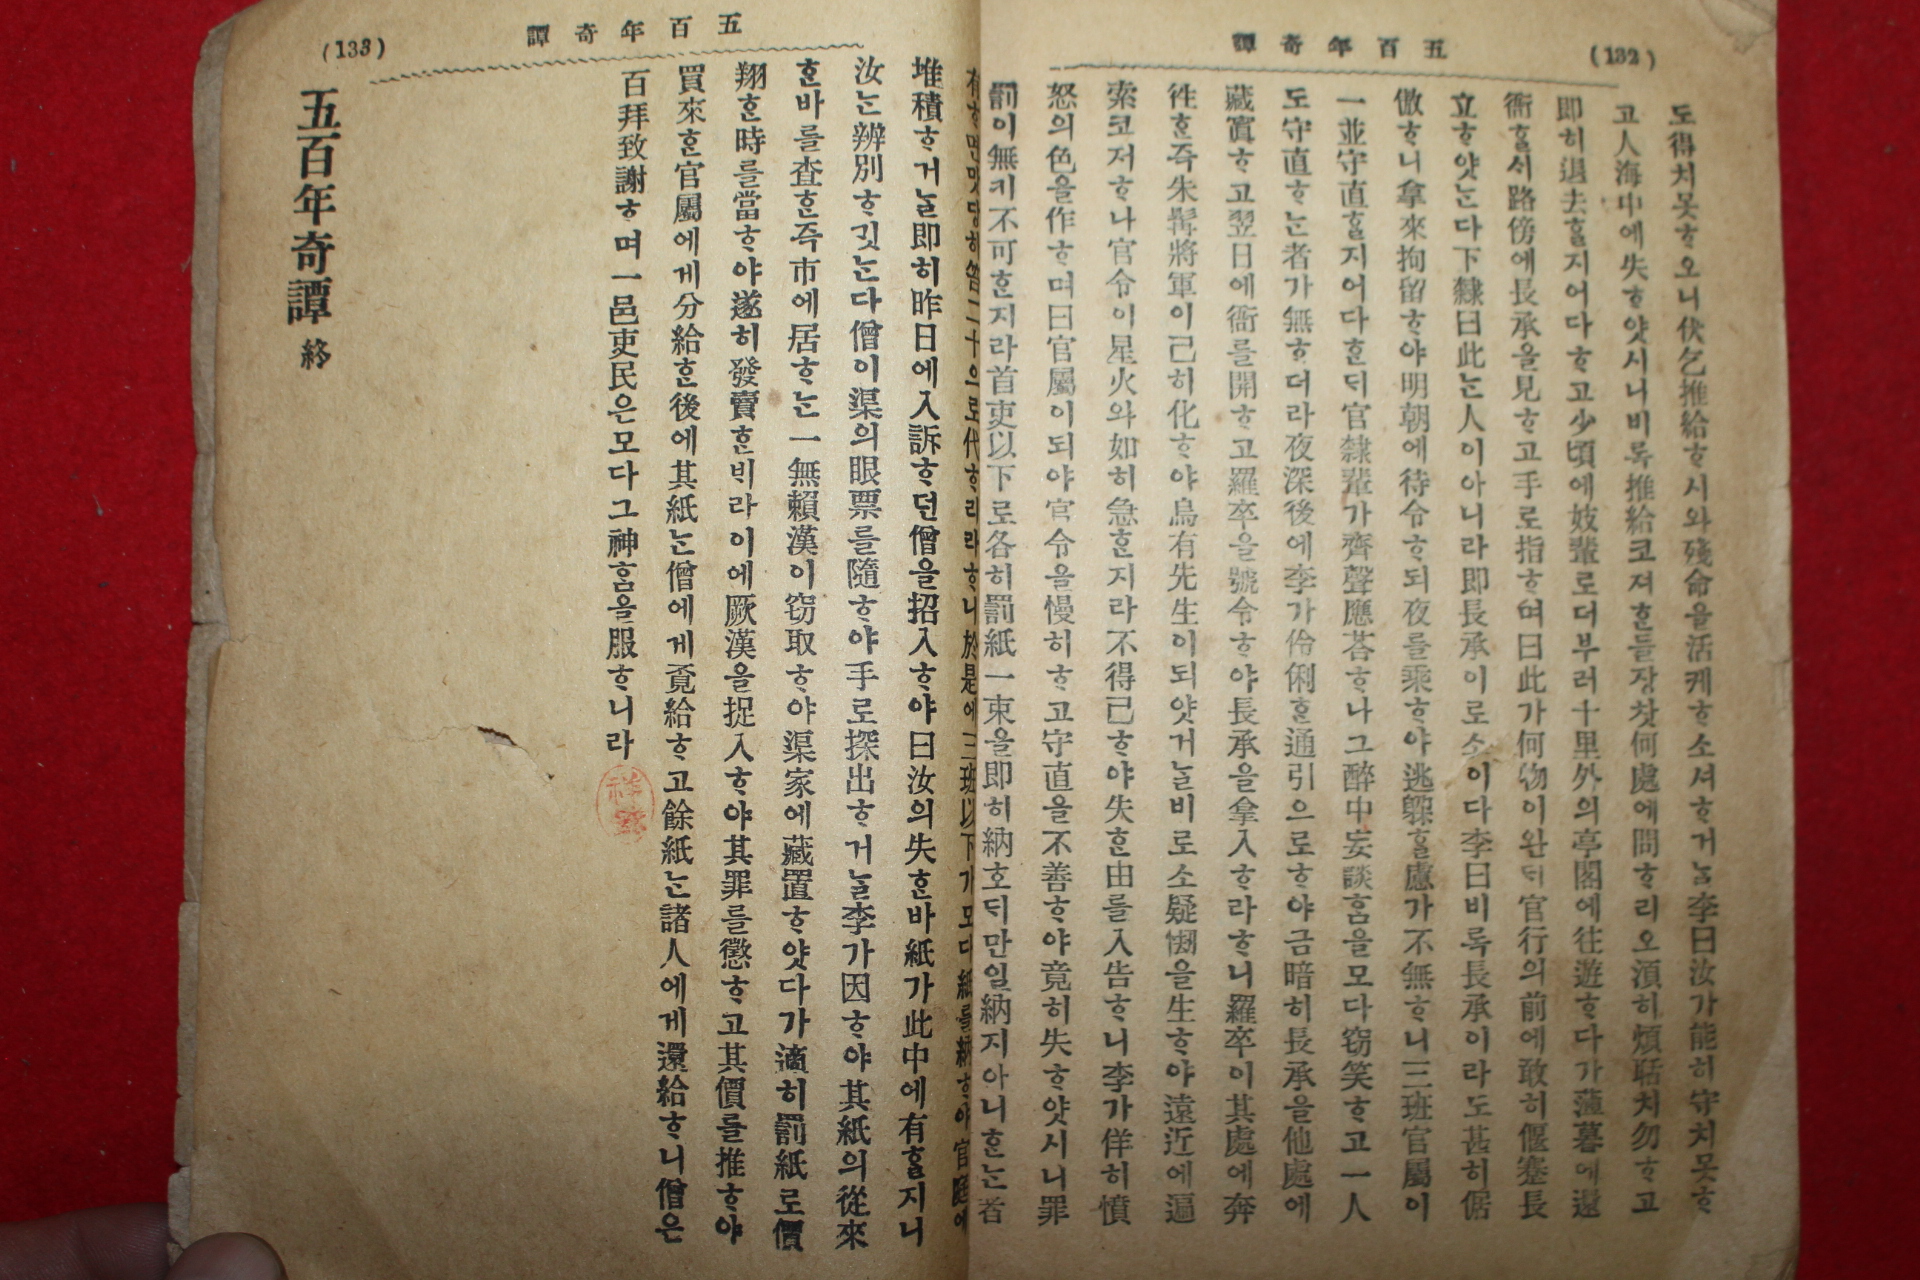 五百年奇譚
(132)
도得치못ᄒᆞ오니伏乞推給ᄒᆞ시와殘命을活케ᄒᆞ소셔ᄒᆞ거ᄂᆞᆯ李曰汝가能히守치못ᄒᆞ
고人海中에失ᄒᆞ얏시니비록推給코져ᄒᆞᆫ들장찻何處에問ᄒᆞ리오須히煩聒치勿ᄒᆞ고
即히退去ᄒᆞᆯ지어다ᄒᆞ고少頃에妓輩로더부러十里外의亭閣에往遊ᄒᆞ다가薄暮에還
衙ᄒᆞᆯᄉᆡ路傍에長承을見ᄒᆞ고手로指ᄒᆞ며曰此가何物이완ᄃᆡ官行의前에敢히偃蹇長
立ᄒᆞ얏ᄂᆞᆫ다下隷曰此ᄂᆞᆫ人이아니라即長承이로소이다李曰비록長承이라도甚히倨
傲ᄒᆞ니拿來拘留ᄒᆞ야明朝에待令ᄒᆞ되夜를乘ᄒᆞ야逃躱ᄒᆞᆯ慮가不無ᄒᆞ니三班官屬이
一並守直ᄒᆞᆯ지어다ᄒᆞᆫᄃᆡ官隷輩가齊聲應答ᄒᆞ나그醉中妄談ᄒᆞᆷ을모다窃笑ᄒᆞ고一人
도守直ᄒᆞᄂᆞᆫ者가無ᄒᆞ더라夜深後에李가伶俐ᄒᆞᆫ通引으로ᄒᆞ야금暗히長承을他處에
藏寘ᄒᆞ고翌日에衙를開ᄒᆞ고羅卒을號令ᄒᆞ야長承을拿入ᄒᆞ라ᄒᆞ니羅卒이其處에奔
徃ᄒᆞᆫ즉朱髯將軍이已히化ᄒᆞ야烏有先生이되얏거ᄂᆞᆯ비로소疑惘을生ᄒᆞ야遠近에遍
索코저ᄒᆞ나官令이星火와如히急ᄒᆞᆫ지라不得已ᄒᆞ야失ᄒᆞᆫ由를入告ᄒᆞ니李가佯히憤
怒의色을作ᄒᆞ며曰官屬이되야官令을慢히ᄒᆞ고守直을不善ᄒᆞ야竟히失ᄒᆞ얏시니罪
罰이無키不可ᄒᆞᆫ지라首吏以下로各히罰紙一束을即히納호ᄃᆡ만일納지아니ᄒᆞᄂᆞᆫ者
五百年奇譚
(133)
有ᄒᆞ면맛당히笞二十으로代ᄒᆞ리라ᄒᆞ니於是에三班以下가모다紙를納ᄒᆞ야官庭에
堆積ᄒᆞ거ᄂᆞᆯ即히昨日에入訴ᄒᆞ던僧을招入ᄒᆞ야曰汝의失ᄒᆞᆫ바紙가此中에有ᄒᆞᆯ지니
汝ᄂᆞᆫ辨別ᄒᆞ깃ᄂᆞᆫ다僧이渠의眼票를隨ᄒᆞ야手로探出ᄒᆞ거ᄂᆞᆯ李가因ᄒᆞ야其紙의從來
ᄒᆞᆫ바를査ᄒᆞᆫ즉市에居ᄒᆞᄂᆞᆫ一無賴漢이窃取ᄒᆞ야渠家에藏置ᄒᆞ얏다가適히罰紙로價
翔ᄒᆞᆫ時를當ᄒᆞ야遂히發賣ᄒᆞᆫᄇᆡ라이에厥漢을捉入ᄒᆞ야其罪를懲ᄒᆞ고其價를推ᄒᆞ야
買來ᄒᆞᆫ官屬에게分給ᄒᆞᆫ後에其紙ᄂᆞᆫ僧에게覓給ᄒᆞ고餘紙ᄂᆞᆫ諸人에게還給ᄒᆞ니僧은
百拜致謝ᄒᆞ며一邑吏民은모다그神ᄒᆞᆷ을服ᄒᆞ니라
五百年奇譚 終